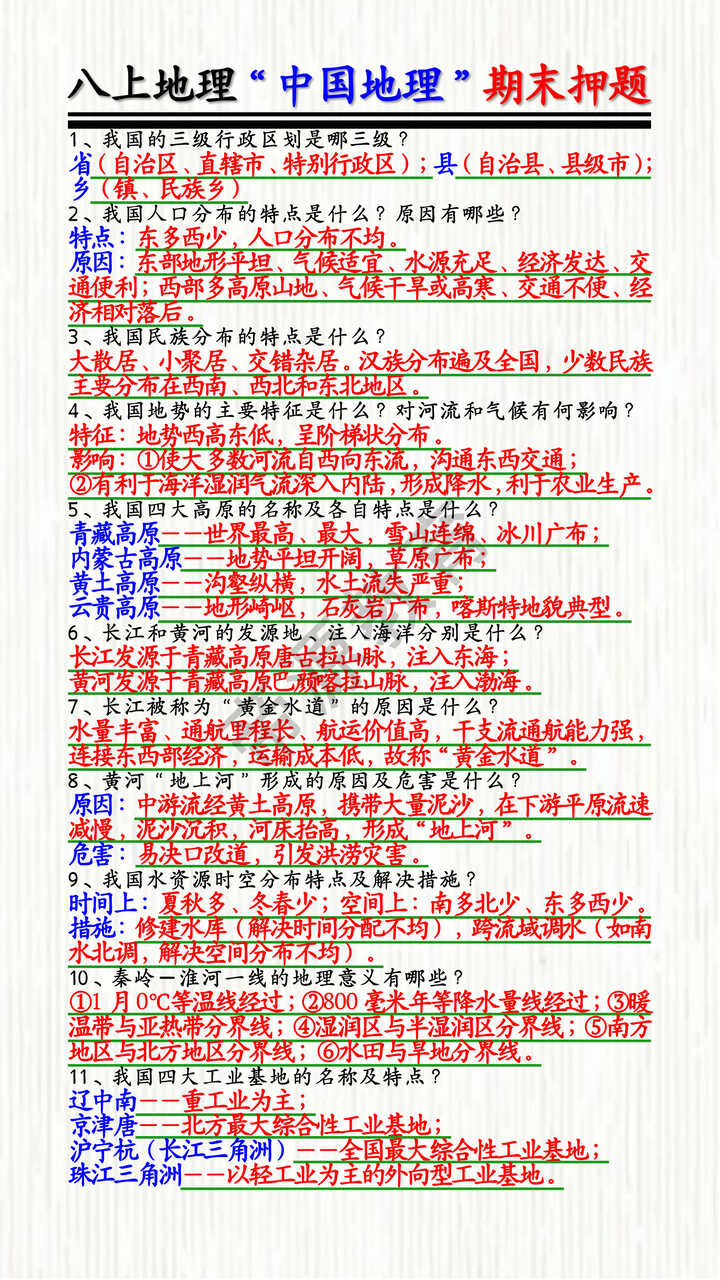 八上地理“中国地理”期末押题
1、我国的三级行政区划是哪三级？
省（自治区、直辖市、特别行政区）；县（自治县、县级市）；
乡（镇、民族乡）
2、我国人口分布的特点是什么？原因有哪些？
特点：东多西少，人口分布不均。
原因：东部地形平坦、气候适宜、水源充足、经济发达、交
通便利；西部多高原山地、气候干旱或高寒、交通不便、经
济相对落后。
3、我国民族分布的特点是什么？
大散居、小聚居、交错杂居。汉族分布遍及全国，少数民族
主要分布在西南、西北和东北地区。
4、我国地势的主要特征是什么？对河流和气候有何影响？
特征：地势西高东低，呈阶梯状分布。
影响：①使大多数河流自西向东流，沟通东西交通；
②有利于海洋湿润气流深入内陆，形成降水，利于农业生产。
5、我国四大高原的名称及各自特点是什么？
青藏高原——世界最高、最大，雪山连绵，冰川广布；
内蒙古高原——地势平坦开阔，草原广布；
黄土高原——沟壑纵横，水土流失严重；
云贵高原——地形崎岖，石灰岩广布，喀斯特地貌典型。
6、长江和黄河的发源地、注入海洋分别是什么？
长江发源于青藏高原唐古拉山脉，注入东海；
黄河发源于青藏高原巴颜喀拉山脉，注入渤海。
7、长江被称为“黄金水道”的原因是什么？
水量丰富、通航里程长、航运价值高，干支流通航能力强，
连接东西部经济，运输成本低，故称“黄金水道”。
8、黄河“地上河”形成的原因及危害是什么？
原因：中游流经黄土高原，携带大量泥沙，在下游平原流速
减慢，泥沙沉积，河床抬高，形成“地上河”。
危害：易决口改道，引发洪涝灾害。
9、我国水资源时空分布特点及解决措施？
时间上：夏秋多、冬春少；空间上：南多北少、东多西少。
措施：修建水库（解决时间分配不均），跨流域调水（如南
水北调，解决空间分布不均）。
10、秦岭－淮河一线的地理意义有哪些？
①1 月 0℃等温线经过；②800 毫米年等降水量线经过；③暖
温带与亚热带分界线；④湿润区与半湿润区分界线；⑤南方
地区与北方地区分界线；⑥水田与旱地分界线。
11、我国四大工业基地的名称及特点？
辽中南——重工业为主；
京津唐——北方最大综合性工业基地；
沪宁杭（长江三角洲）——全国最大综合性工业基地；
珠江三角洲——以轻工业为主的外向型工业基地。